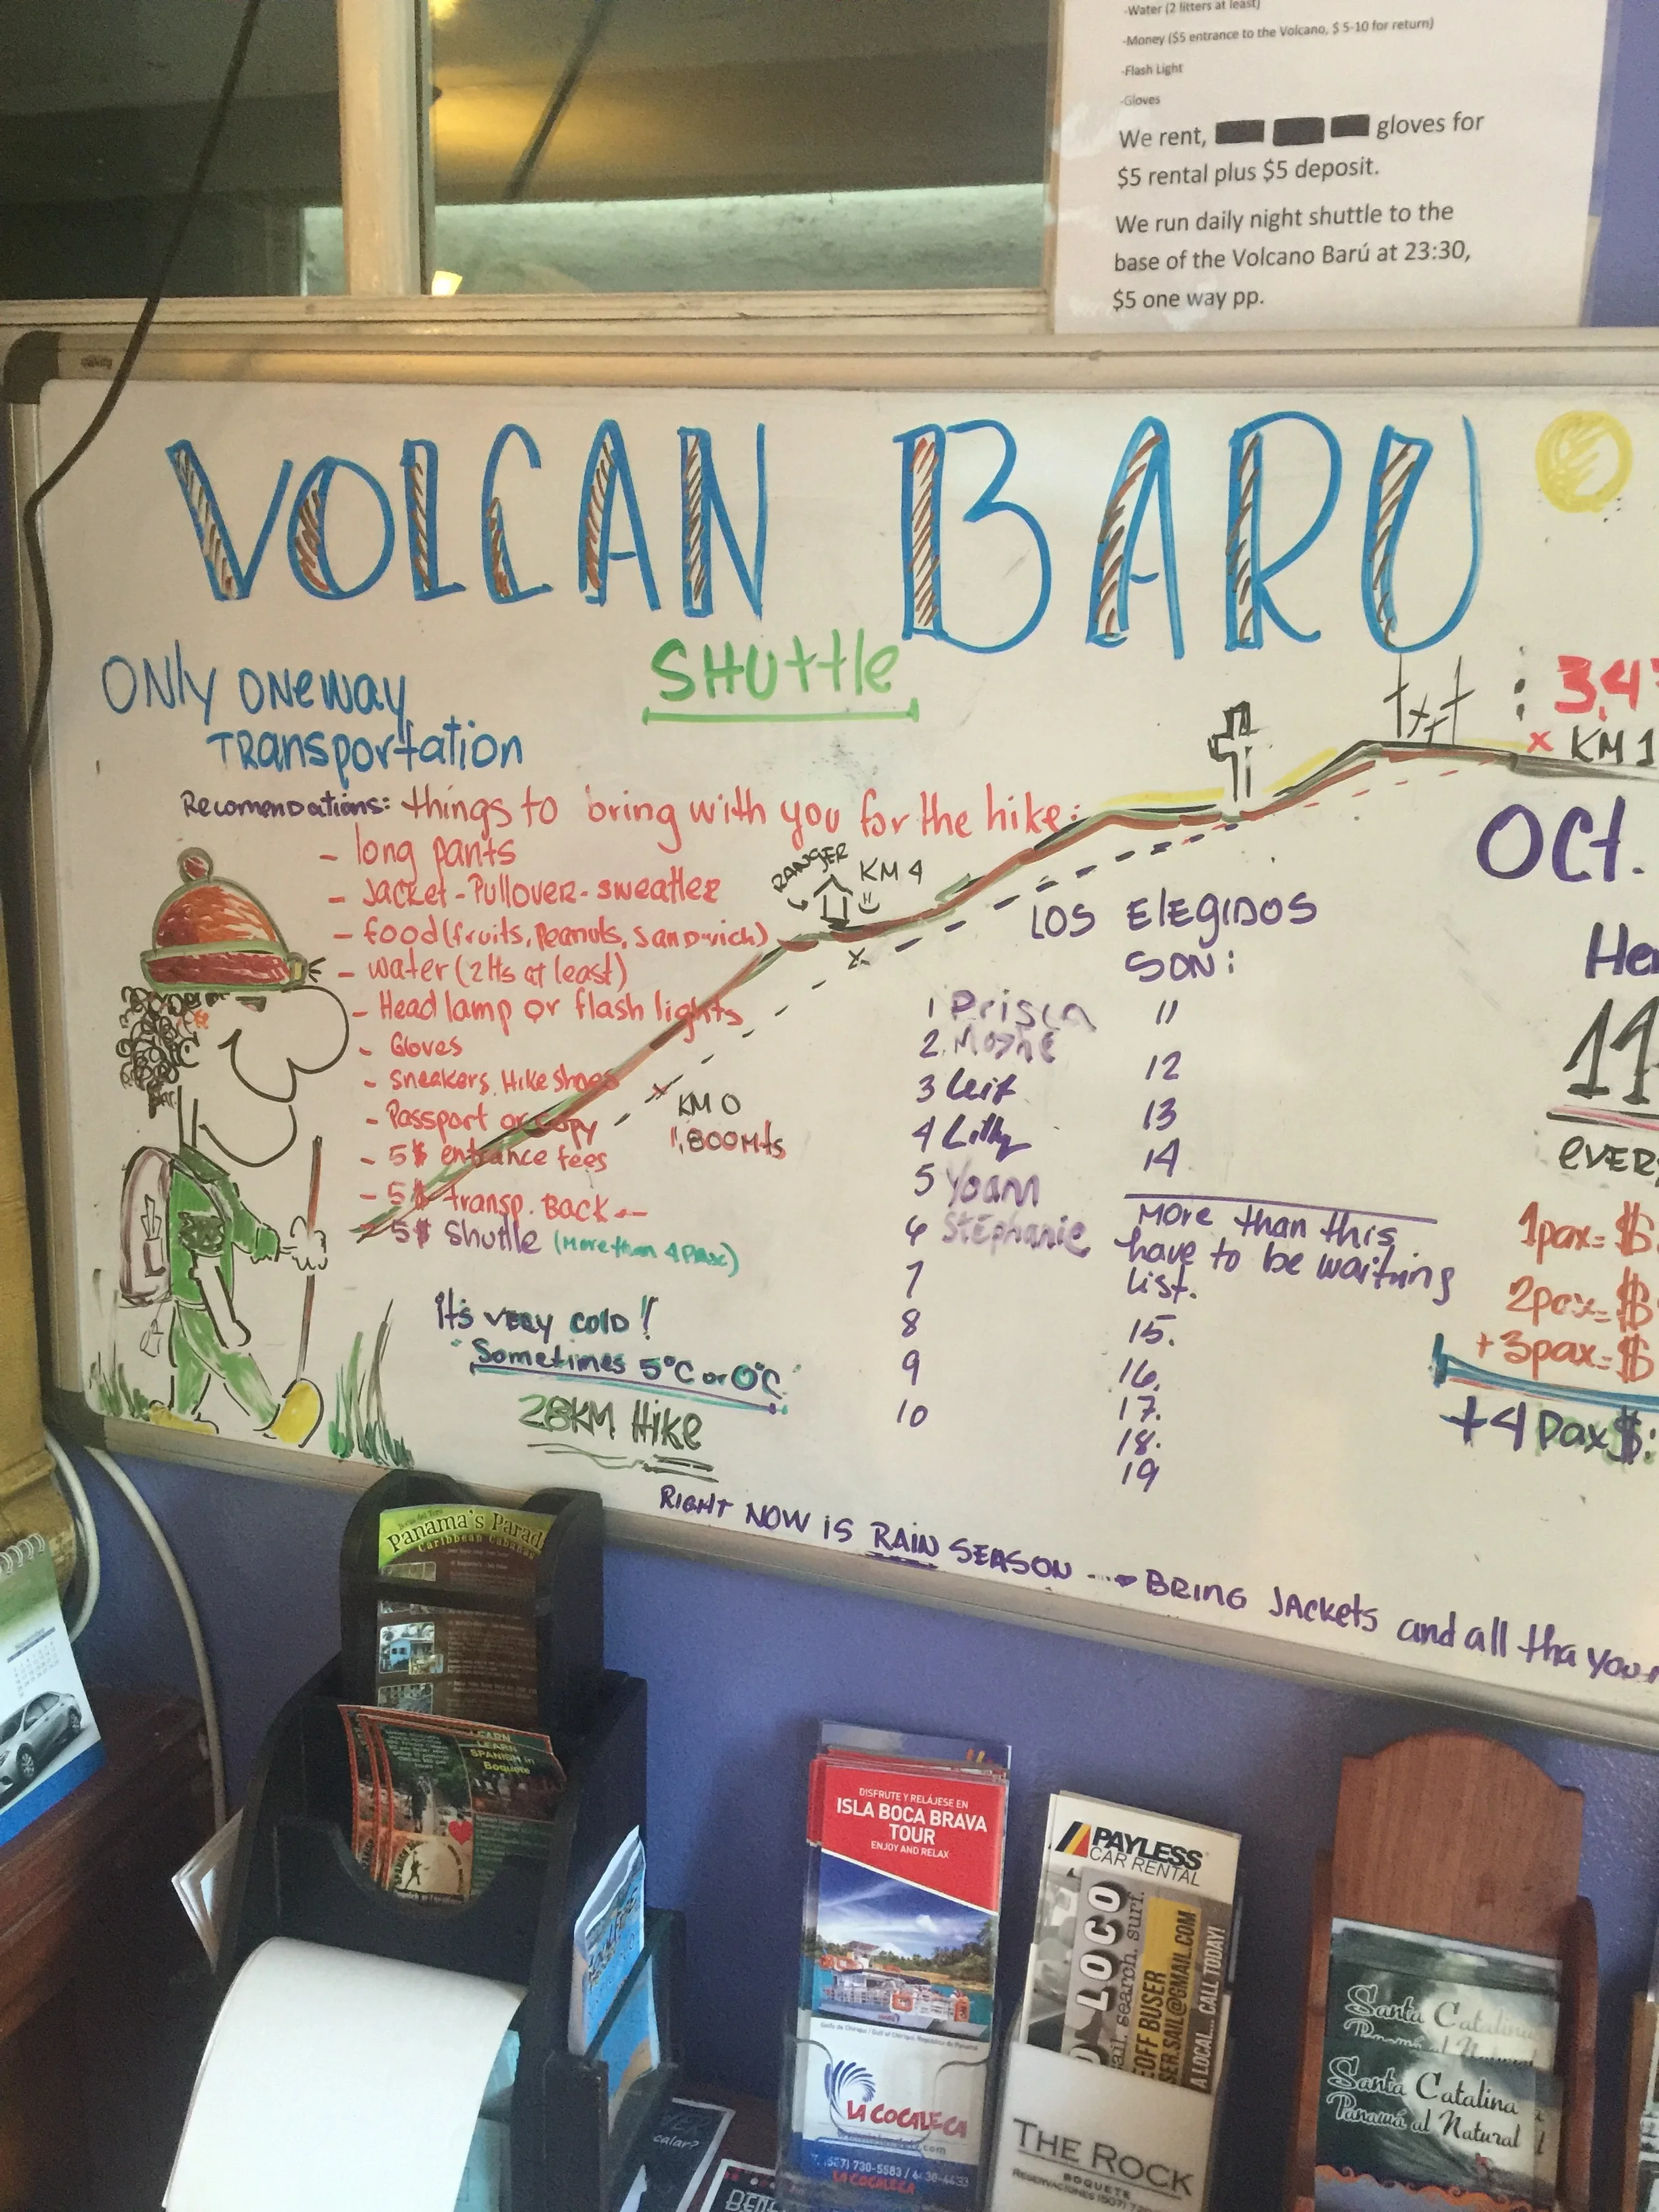 -Water (2 litters at least)
-Money ($5 entrance to the Volcano, $ 5-10 for return)
-Flash Light
-Gloves
We rent, gloves for
$5 rental plus $5 deposit.
We run daily night shuttle to the
base of the Volcano Barú at 23:30,
$5 one way pp.
VOLCAN BARU
SHUttle
ONly ONE way
TRansportation
: 3,4
x KM 1
Recomendations: things to bring with you for the hike:
- long pants
- Jacket - Pullover - sweatler
- food (fruits, peanuts, sandwich)
- water (2 lts at least)
- Head lamp or flash lights
- Gloves
- Sneakers, Hike Shoes
- Passport or copy
- 5$ entrance fees
- 5$ transp. BACK
- 5$ Shuttle (More than 4 Pax)
It's very cold!
"Sometimes 5°C or 0°C"
28KM Hike
RANGER
KM 4
KM 0
1,800 Mts
LOS ElEGIDOS
SON:
1 Prisca
2. Moshe
3 Leif
4 Lilly
5 Yoann
6 Stéphanie
7
8
9
10
11
12
13
14
More than this
have to be waiting
list.
15.
16.
17.
18.
19
Oct.
11
1pax= $
2pax= $
+3pax= $
+4 Pax $:
RIGHT NOW IS RAIN SEASON → BRING JACKETS and all tha you
Panama's Parad
Caribbean Cabanas
LEARN
SPANISH in
Boquete
DISFRUTE Y RELÁJESE EN
ISLA BOCA BRAVA
TOUR
ENJOY AND RELAX
LA COCALECA
.com
LA COCALECA
PAYLESS
CAR RENTAL
LOCO
sail. search. surf.
GEOFF BUSER
SER.SAIL@GMAIL.COM
A LOCAL... CALL TODAY!
THE ROCK
BOQUETE
Santa Catalina
Panamá al Natural
Santa Catalina
Panamá al Natural
November
calar?